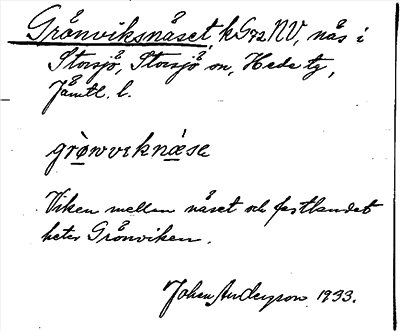 Grönviksnäset, k G72 NV, näs i
Storsjö, Storsjö sn, Hede tg,
Jämtl. l.
grònvɩknǽsɛ
Viken mellan näset och fastlandet
heter Grönviken.
Johan Anderson 1933.